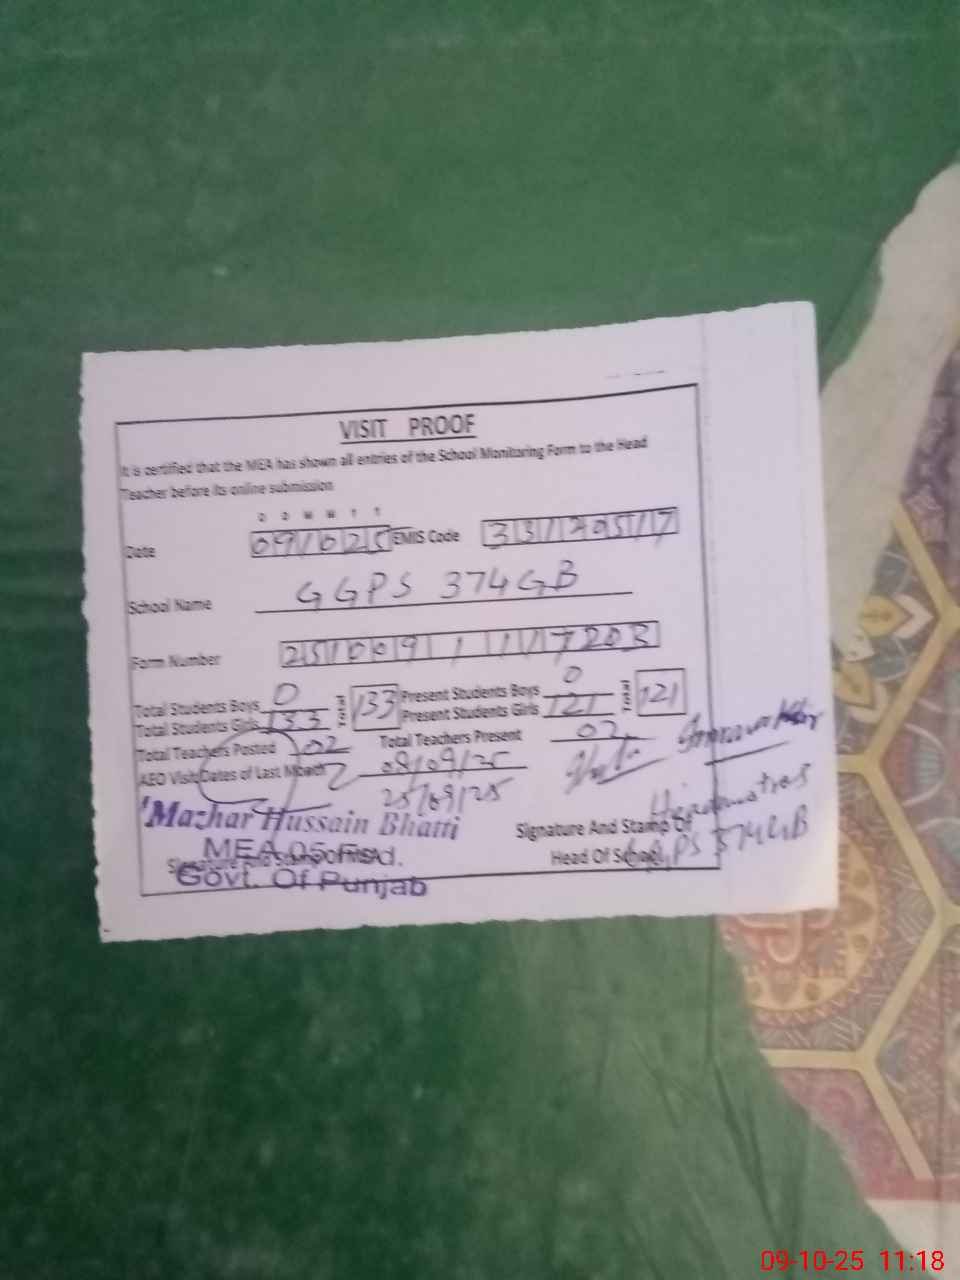 VISIT PROOF
It is certified that the MEA has shown all entries of the School Monitoring Form to the Head
Teacher before its online submission
D D M M Y Y
Date 091025 EMIS Code 33120517
School Name GGPS 374GB
Form Number 25100911117203
Total Students Boys 0 Present Students Boys 0
Total Students Girls 133 Total 133 Present Students Girls 121 Total 121
Total Teachers Posted 02 Total Teachers Present 02
AEO Visit Dates of Last Month 2 08/09/25
25/09/25
Mazhar Hussain Bhatti
MEA 05 Fsd.
Govt. Of Punjab
Signature And Stamp Of
Head Of School
Headmistress
GGPS 374GB
09-10-25 11:18